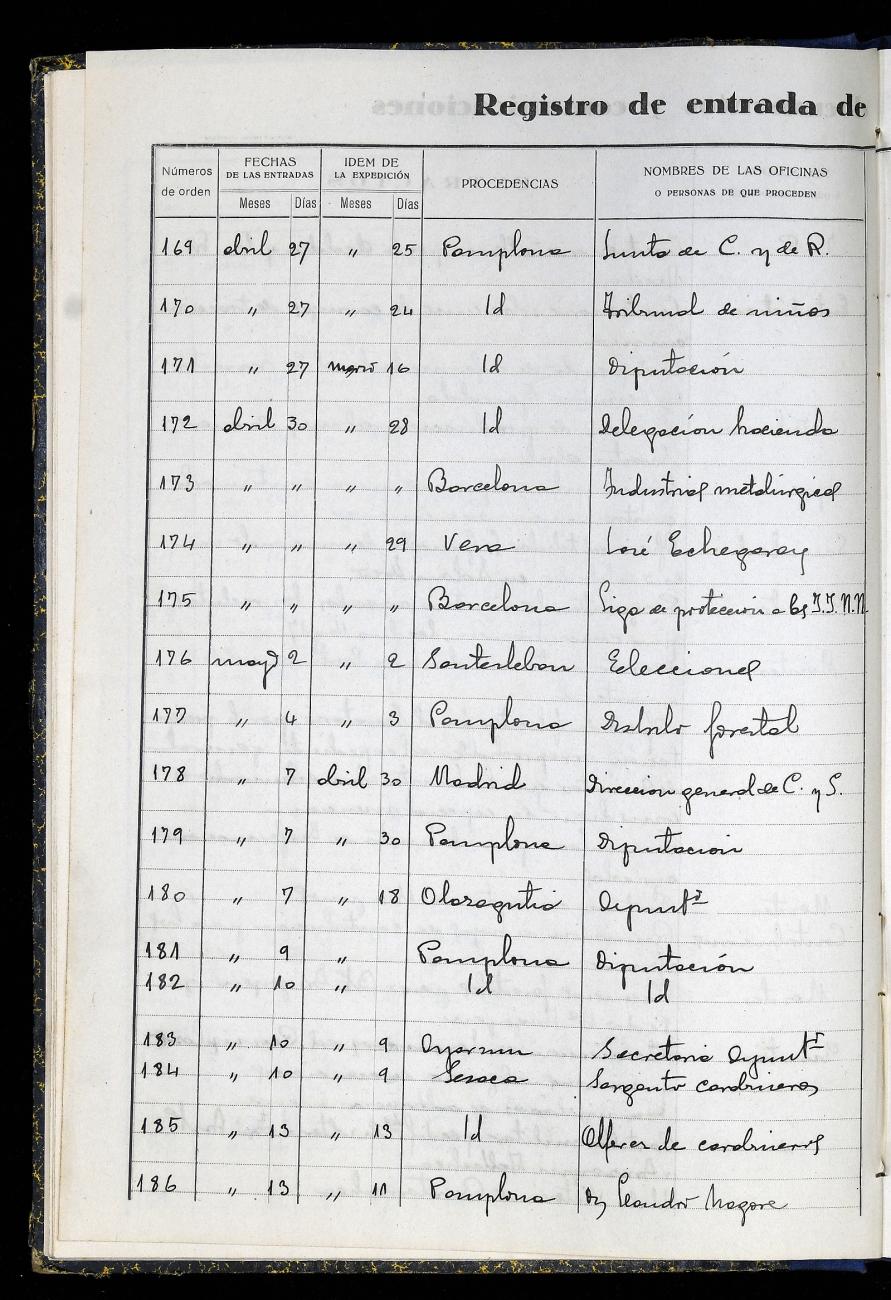 Registro de entrada de
Números de orden | FECHAS DE LAS ENTRADAS Meses Días | IDEM DE LA EXPEDICIÓN Meses Días | PROCEDENCIAS | NOMBRES DE LAS OFICINAS O PERSONAS DE QUE PROCEDEN
169 abril 27 " 25 Pamplona Junta de C. y de R.
170 " 27 " 24 Id Tribunal de niños
171 " 27 marzo 16 Id Diputación
172 abril 30 " 28 Id Delegación hacienda
173 " " " " Barcelona Industrial metalúrgica
174 " " " 29 Vera José Echegaray
175 " " " " Barcelona Liga de protección a los I.I. N.N.
176 mayo 2 " 2 Santesteban Elecciones
177 " 4 " 3 Pamplona Distrito forestal
178 " 7 abril 30 Madrid Dirección general de C. y S.
179 " 7 " 30 Pamplona Diputación
180 " 7 " 18 Olazagutia Ayuntº
181 " 9 " Pamplona Diputación
182 " 10 " Id Id
183 " 10 " 9 Oyarzun Secretario Ayuntº
184 " 10 " 9 Lesaca Sargento carabineros
185 " 13 " 13 Id Alferez de carabineros
186 " 13 " 11 Pamplona Dn Leandro Nagore